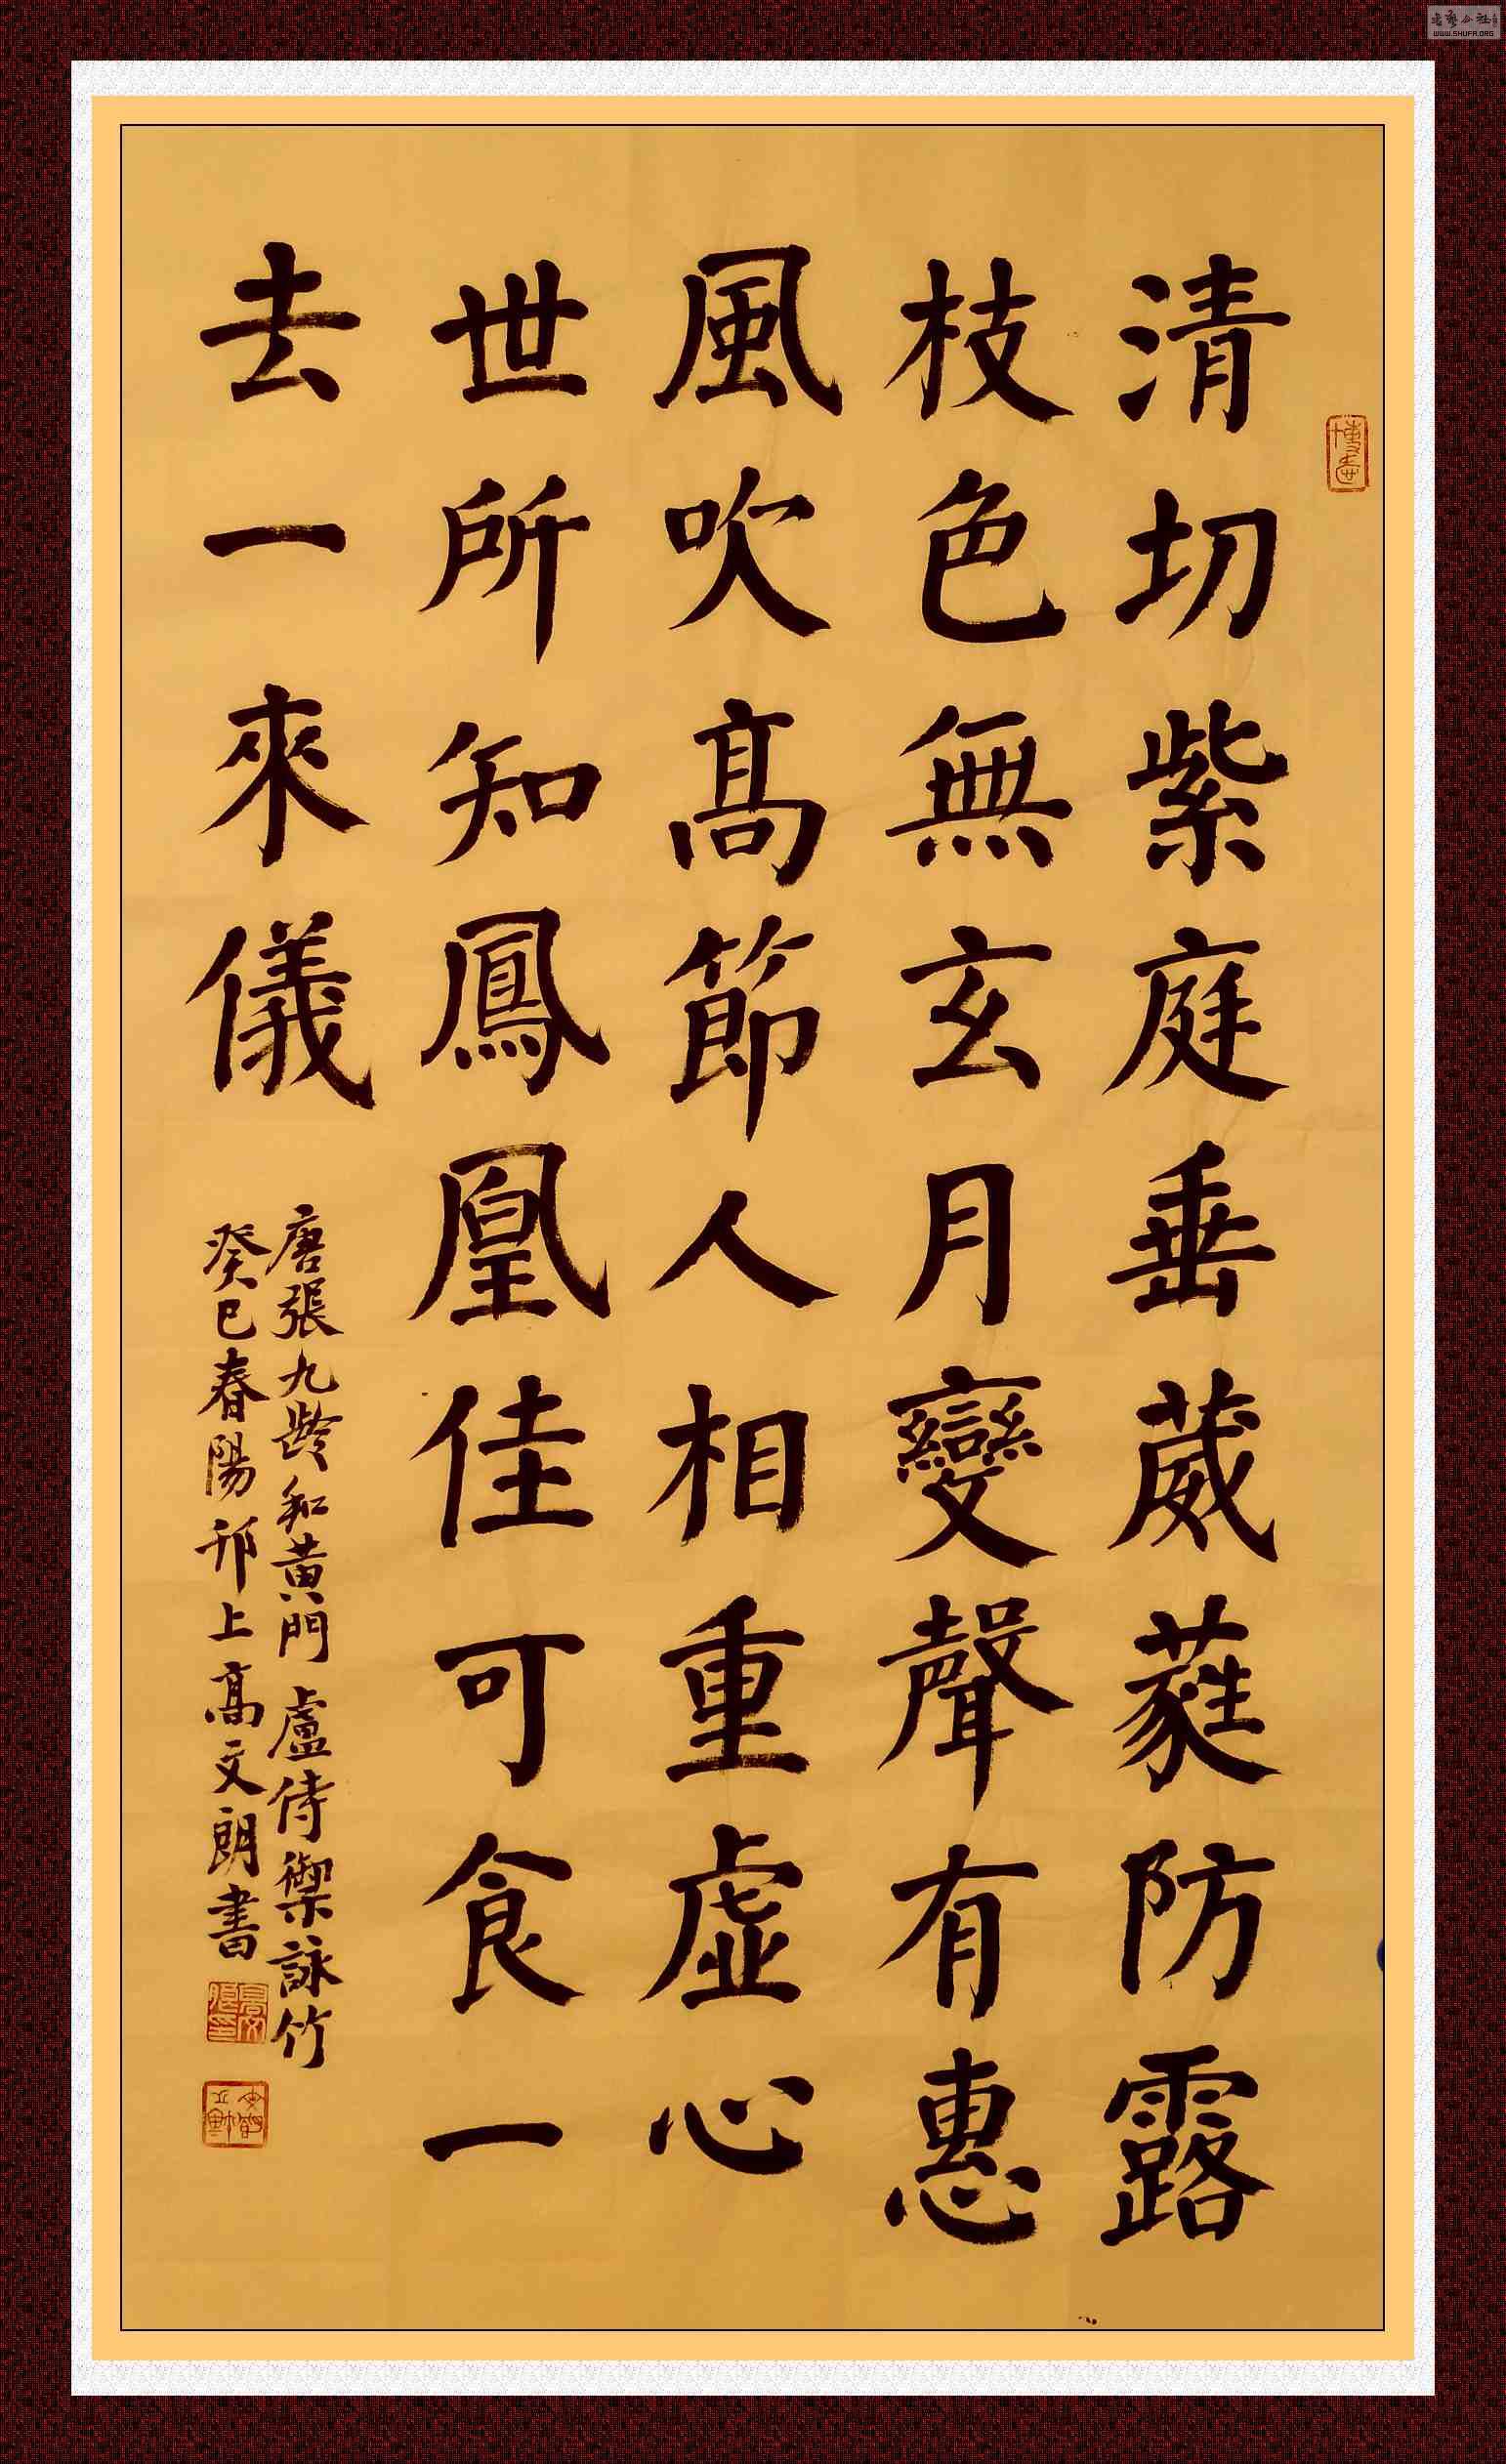 清切紫庭垂葳蕤防露
枝色無玄月變聲有惠
風吹高節人相重虛心
世所知鳳凰佳可食一
去一來儀
唐張九齡和黃門盧侍御詠竹
癸巳春陽邗上高文朗書
WWW.SHUFA.ORG